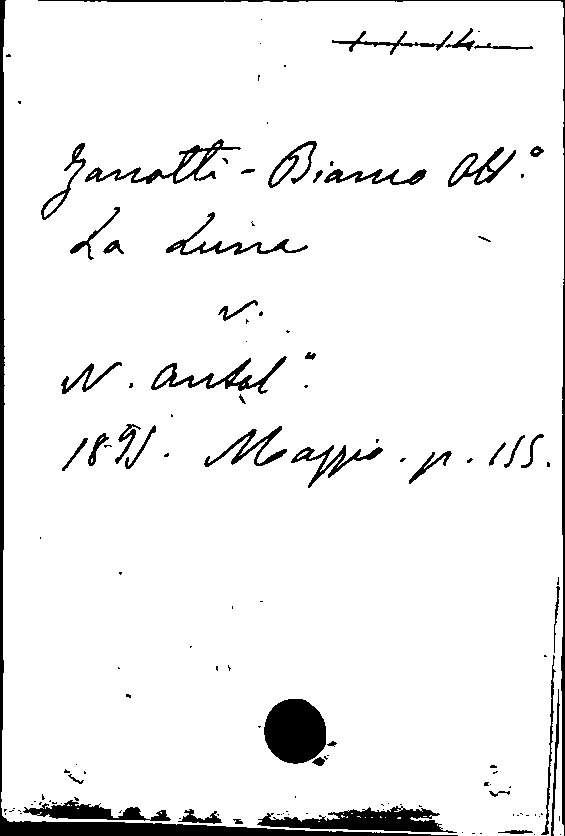 Zanotti-Bianco Ott.º
La Luna
v.
N. Antol.ª
1895. Maggio. p. 155.